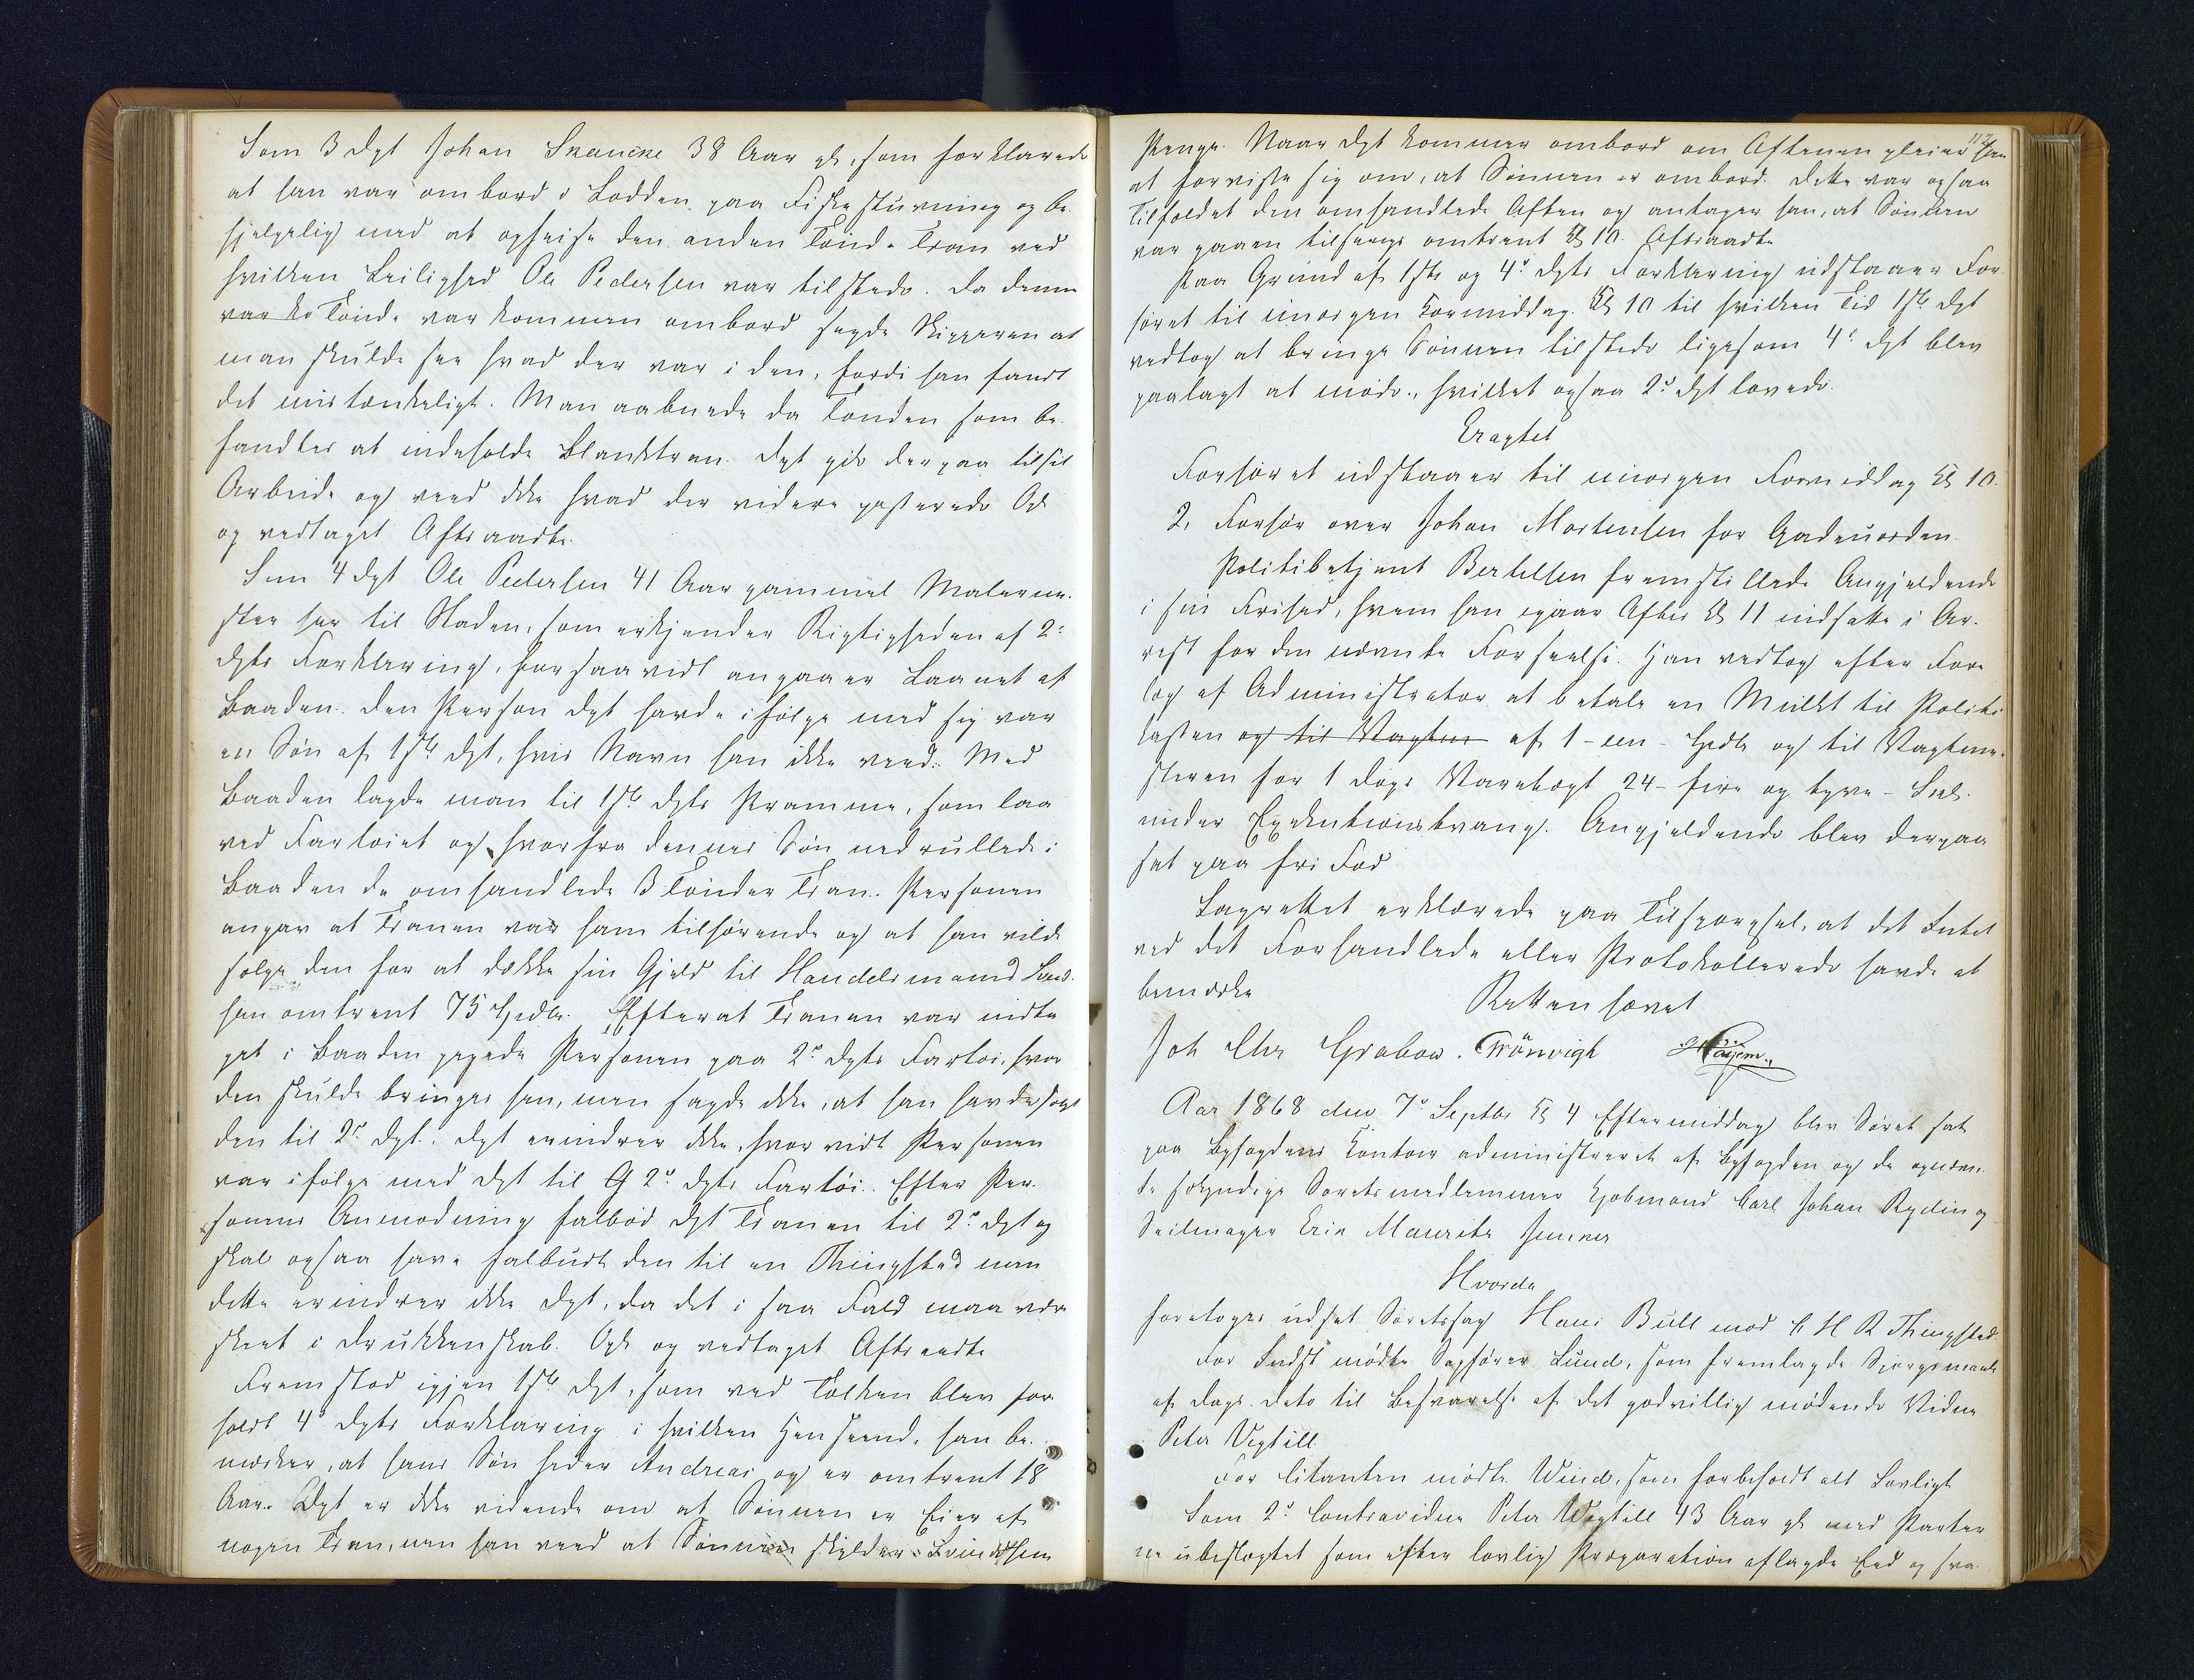 Som 3 dpt Johan Skancke 38 Aar gl, som forklarede
at han var ombord i Lodden paa Fiskestuvning og be-
hjelpelig med at opheise den anden Tønde Tran ved
hvilken Leilighed Ole Pedersen var tilstede. Da denne
var ko Tønde var kommen ombord sagde Skipperen at
man skulde see hvad der var i den, fordi han fandt
det mistænkeligt. Man aabnede da Tønden som be-
fandtes at indeholde Blanktran. Dpt gik derpaa til sit
Arbeide og veed ikke hvad der videre passerede Opl
og vedtaget Aftraadte.
Som 4 dpt Ole Pedersen 41 Aar gammel Malerme-
ster her til Staden, som erkjender Rigtigheden af 2den
dpts Forklaring, forsaavidt angaaer Laanet af
Baaden. Den Person dpt havde ifølge med sig var
en Søn af 1ste dpt, hvis Navn han ikke veed. Med
Baaden lagde man til 1ste dpts Pramme, som laa
ved Fartøiet og hvorfra dennes Søn nedrullede i
Baaden de omhandlede 3 Tønder Tran. Personen
angav at Tranen var ham tilhørende og at han vilde
sælge den for at dække sin Gjæld til Handelsmand
sen omtrent 75 Spdlr. Efterat Tranen var indta-
get i Baaden pegede Personen paa 2den dpts Fartøi, hvor
den skulde bringes hen, men sagde ikke, at han havde solgt
den til 2den dpt. Dpt erindrer ikke, hvorvidt Personen
var ifølge med dpt til G 2den dpts Fartøi. Efter Per-
sonens Anmodning falbød dpt Tranen til 2den dpt og
skal ogsaa have falbudt den til en Thingsted men
dette erindrer ikke dpt, da det i saa Fald maa være
skeet i Drukkenskab. Opl og vedtaget Aftraadte
Fremstod igjen 1ste dpt, som ved Tolken blev fore-
holdt 4de dpts Forklaring i hvilken Henseende han be-
mærker, at hans Søn heder Andreas og er omtrent 18
Aar. Dpt er ikke vidende om at Sønnen er Eier af
nogen Tran, men han veed at Sønnen skylder
117
Penge. Naar dpt kommer ombord om Aftenen pleier han
at forvisse sig om, at Sønnen er ombord. Dette var ogsaa
Tilfældet den omhandlede Aften og antager han, at Sønnen
var gaaen tilsengs omtrent Kl 10. Aftraadte
Paa Grund af 1ste og 4de dpts Forklaring udstaaer For-
høret til imorgen Formiddag Kl 10 til hvilken Tid 1ste dpt
vedtog at bringe Sønnen tilstede ligesom 4de dpt blev
paalagt at møde, hvilket ogsaa 2den dpt lovede.
Eragtet
Forhøret udstaaer til imorgen Formiddag Kl 10.
2, Forhør over Johan Mortensen for Gadeuorden
Politibetjent Bertelsen fremstillede Angjeldende
i sin Frihed, hvem han igaar Aftes Kl 11 indsatte i Ar-
rest for den nævnte Forseelse. Han vedtog efter Fore-
læg af Administrator at betale en Mulkt til Politi-
kassen og til Vagten af 1 - een - Spdlr og til Vagtme-
steren for 1 Dags Varetægt 24 - fire og tyve - Skl.
under Exekutionstvang. Angjeldende blev derpaa
sat paa fri Fod
Lagrettet erklærede paa Tilspørgsel, at det Intet
ved det Forhandlede eller Protokollerede havde at
bemærke
Retten hævet
Joh Chr Grabow. Trönvigh Hagem.
Aar 1868 den 7de Septbr Kl 4 Eftermiddag blev Søret sat
paa Byfogdens Kontoir administreret af Byfogden og de opnævn-
te søkyndige Søretsmedlemmer Kjøbmand Carl Johan Ryding
Seilmager Erik Mauritz Jenner
Hvorda
foretoges udsat Søretssag Hans Bull mod C H R Thingsted
For Indst mødte Sagfører Lund, som fremlagde Spørgsmaale
af Dags Dato til Besvarelse af det godvillig mødende Vidne
Peter Vegtill
For Citanten mødte Wind, som forbeholdt alt Lovligt
Som 2det Contravidne Peter Wegtill 43 Aar gl med Parter-
ne ubeslægtet som efter lovlig Præparation aflagde Eed og sva-